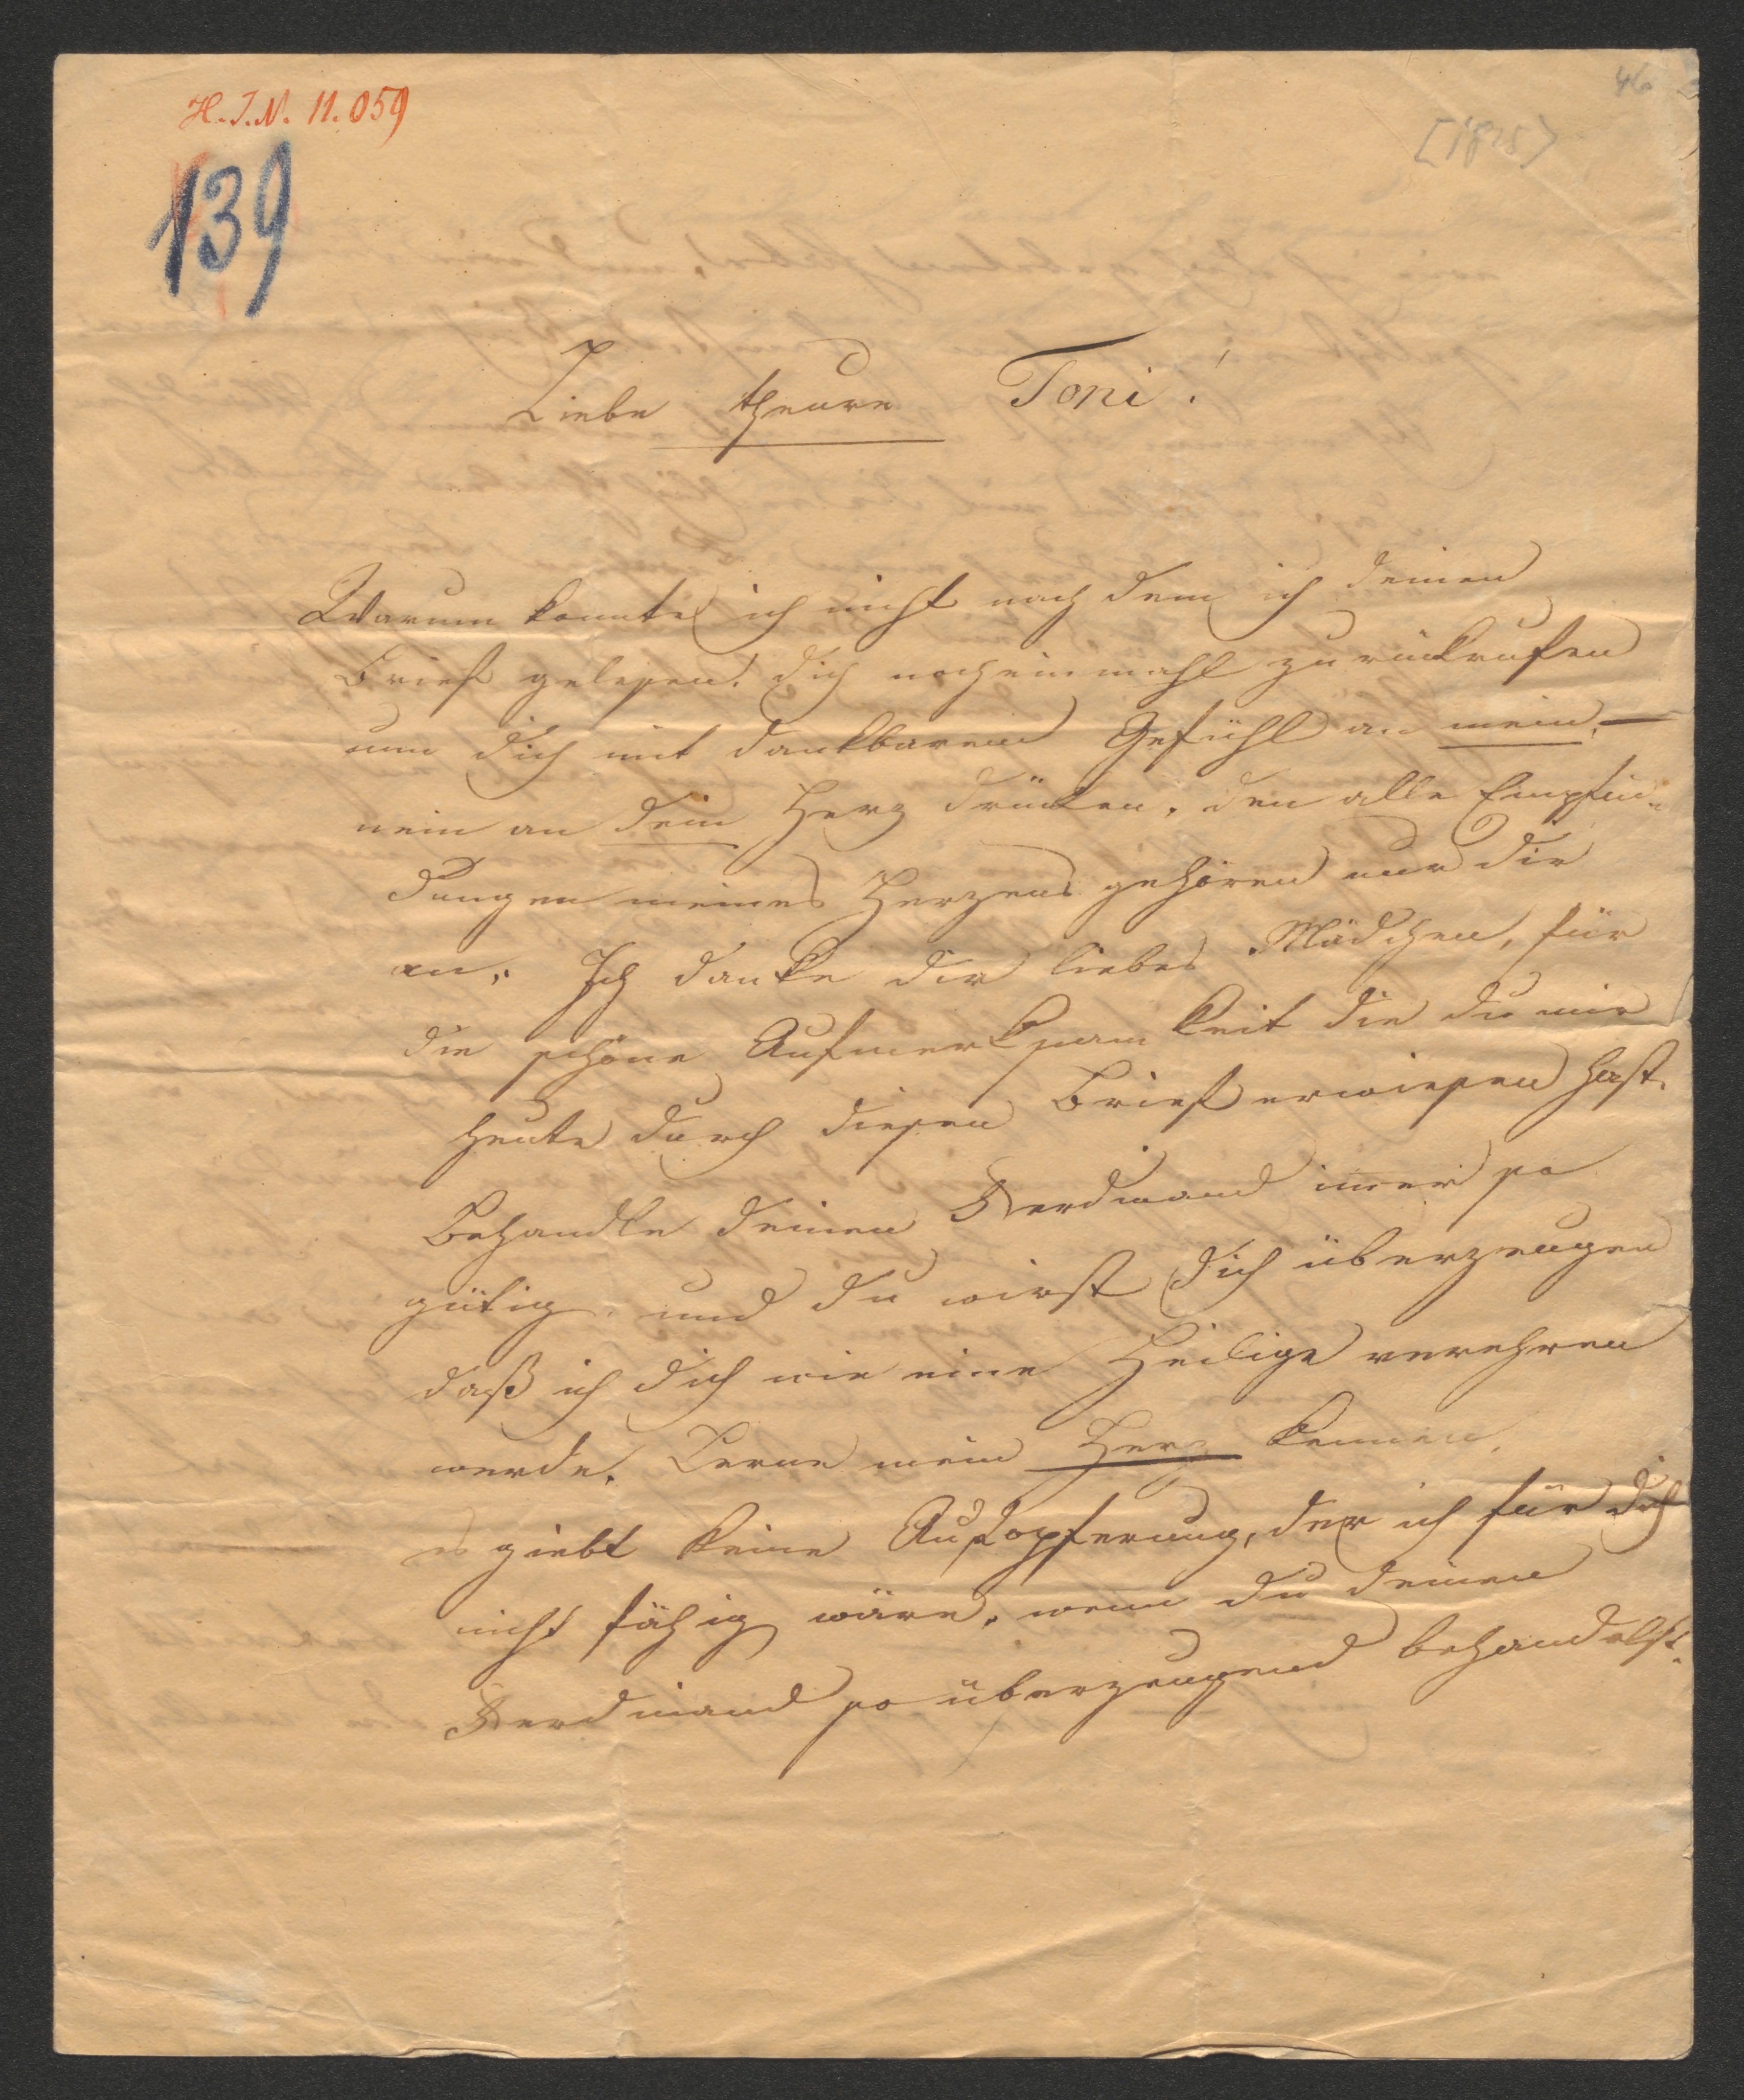 H.I.N. 11.059
46
[1825]
139
Liebe theure Toni!
Warum konnte ich nicht nach dem ich deinen
Brief gelesen! dich noch einmahl zurückrufen
um dich mit dankbarem Gefühl an mein, —
nein an dein Herz drücken. den alle Empfin-
dungen meines Herzens gehören nur dir
an. Ich danke dir liebes Mädchen, für
die schöne Aufmerksamkeit die du mir
heute durch diesen Brief erwiesen hast.
Behandle deinen Ferdinand imer so
gütig und du wirst dich überzeugen
daß ich dich wie eine Heilige verehren
werde. Lerne mein Herz kennen.
es giebt keine Aufopferung, der ich für dich
nicht fähig wäre, wenn du deinen
Ferdinand so überzeugend behandelst.